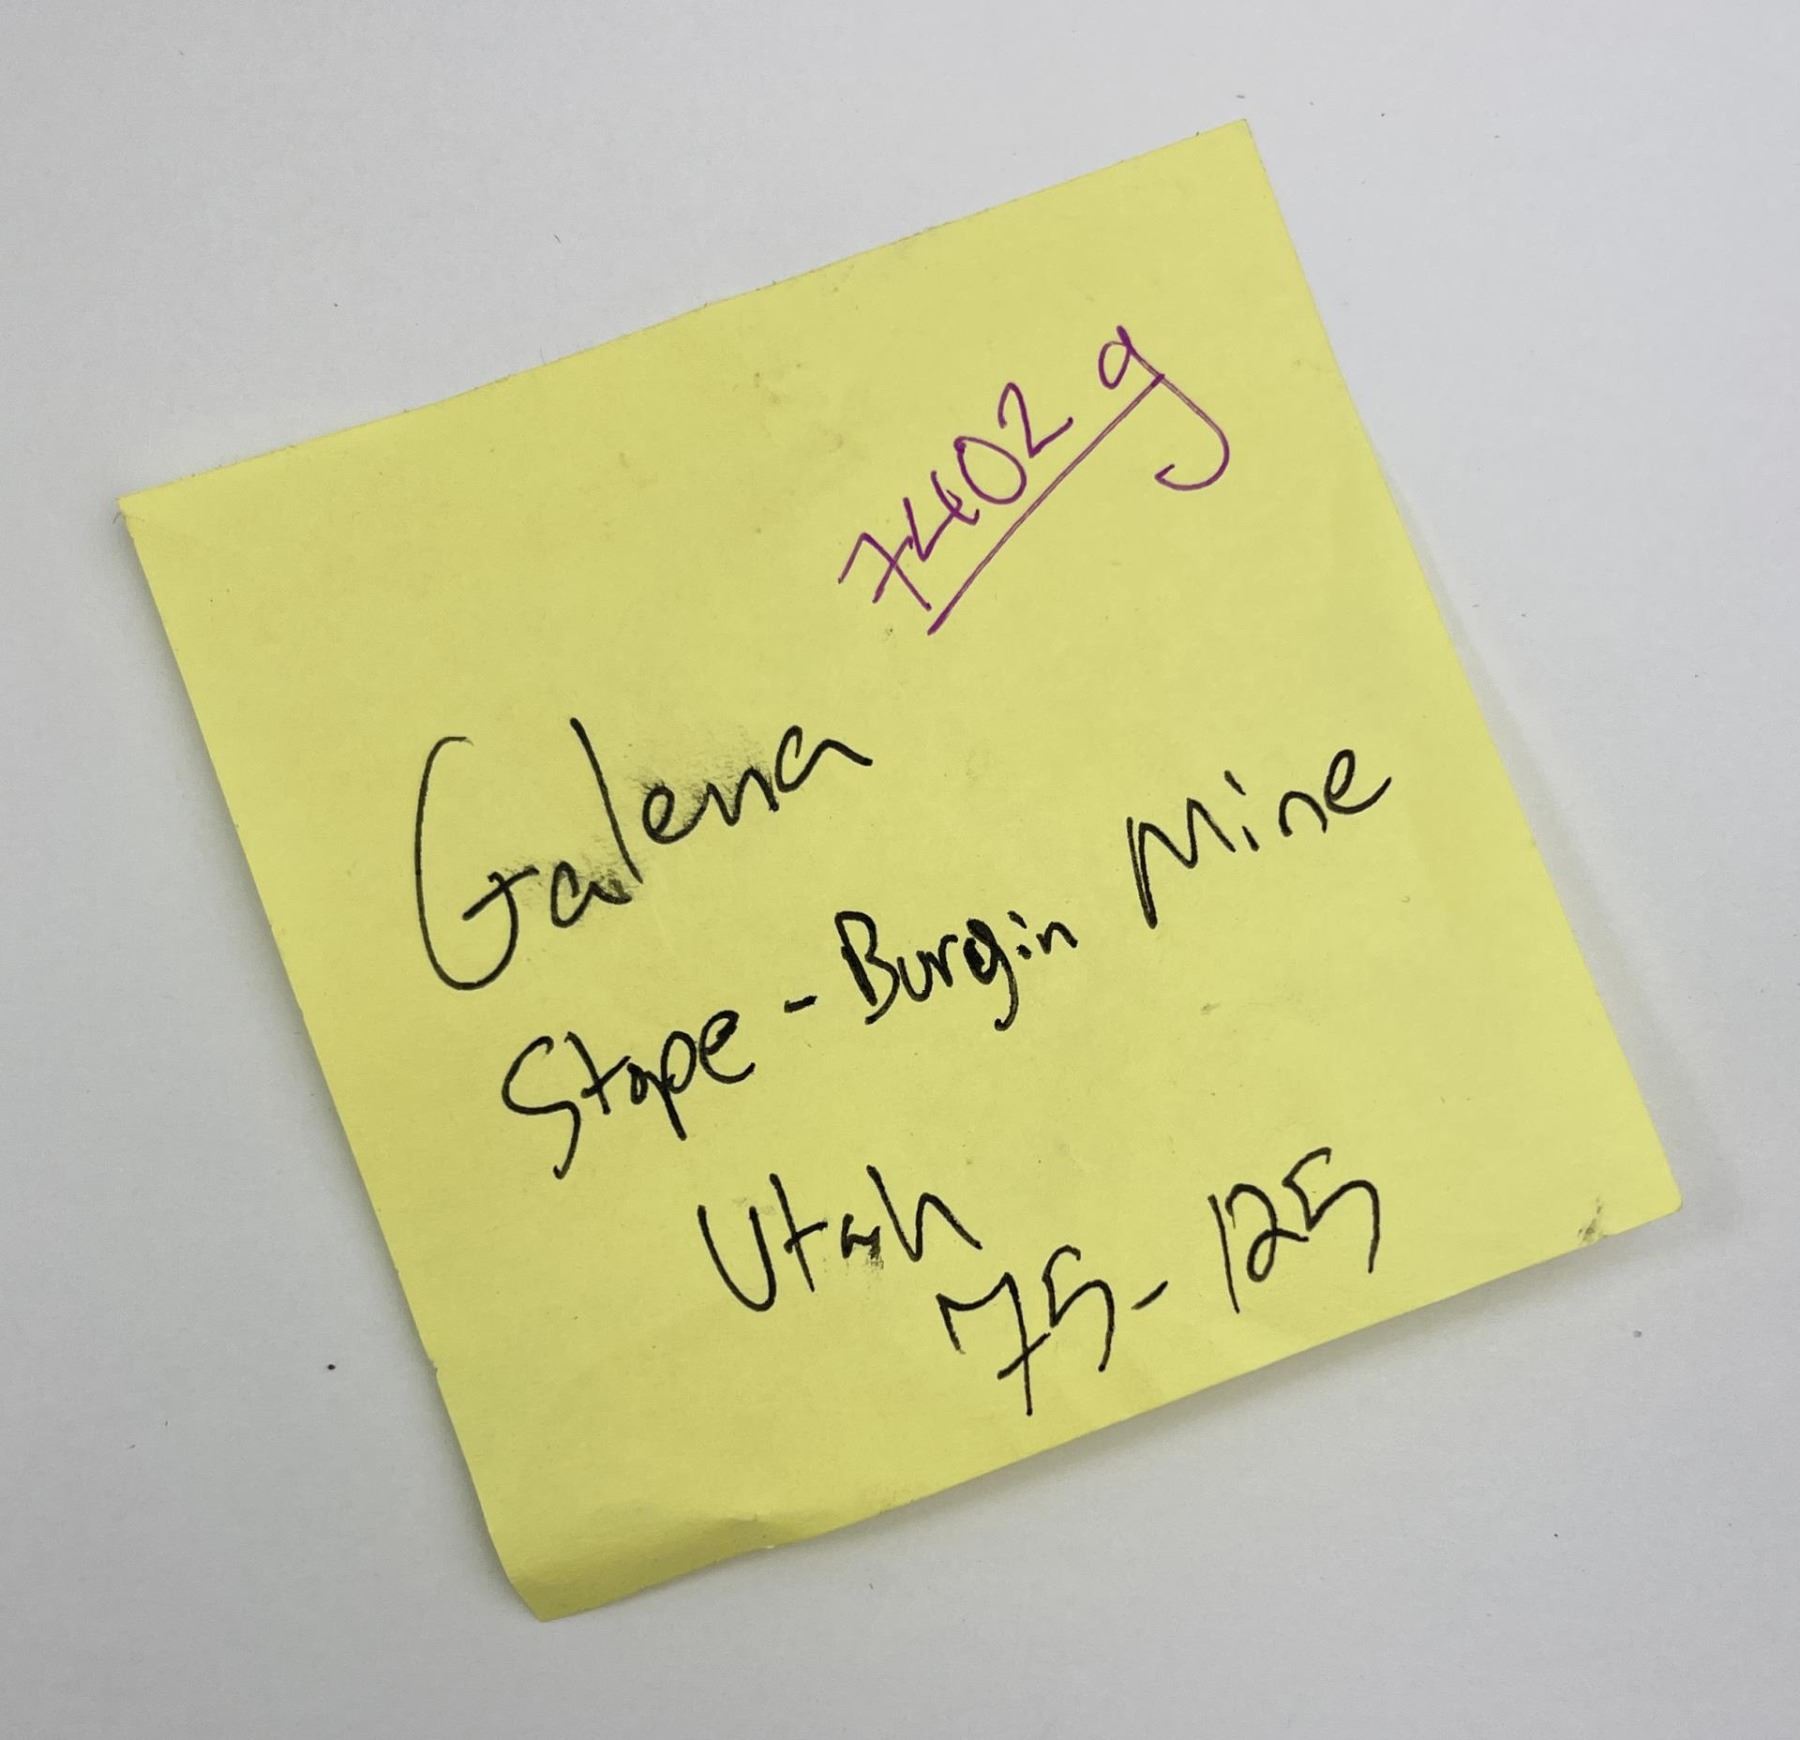 7402 g
Galena
Stope - Burgin Mine
Utah
75-125